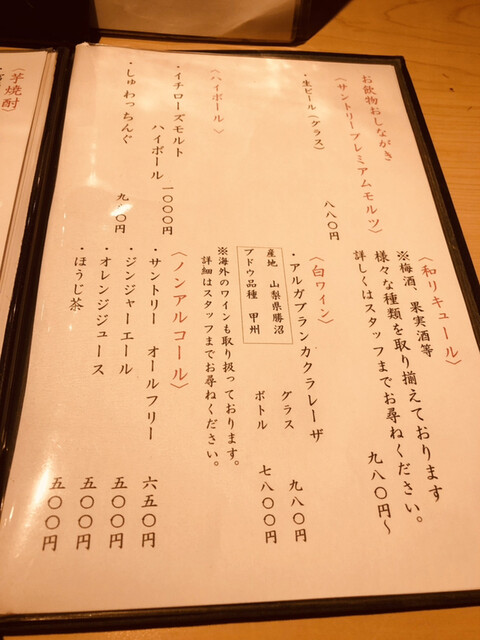 お飲物おしながき
〈サントリープレミアムモルツ〉
・生ビール（グラス）
八八〇円
〈ハイボール〉
・イチローズモルト
ハイボール
一〇〇〇円
・しゅわっちんぐ
九八〇円
〈和リキュール〉
※梅酒、果実酒等
様々な種類を取り揃えております
詳しくはスタッフまでお尋ねください。
九八〇円〜
〈白ワイン〉
・アルガブランカクラレーザ
産地　山梨県勝沼
ブドウ品種　甲州
グラス　九八〇円
ボトル　七八〇〇円
※海外のワインも取り扱っております。
詳細はスタッフまでお尋ねください。
〈ノンアルコール〉
・サントリー　オールフリー　六五〇円
・ジンジャーエール　五〇〇円
・オレンジジュース　五〇〇円
・ほうじ茶　五〇〇円
〈芋焼酎〉